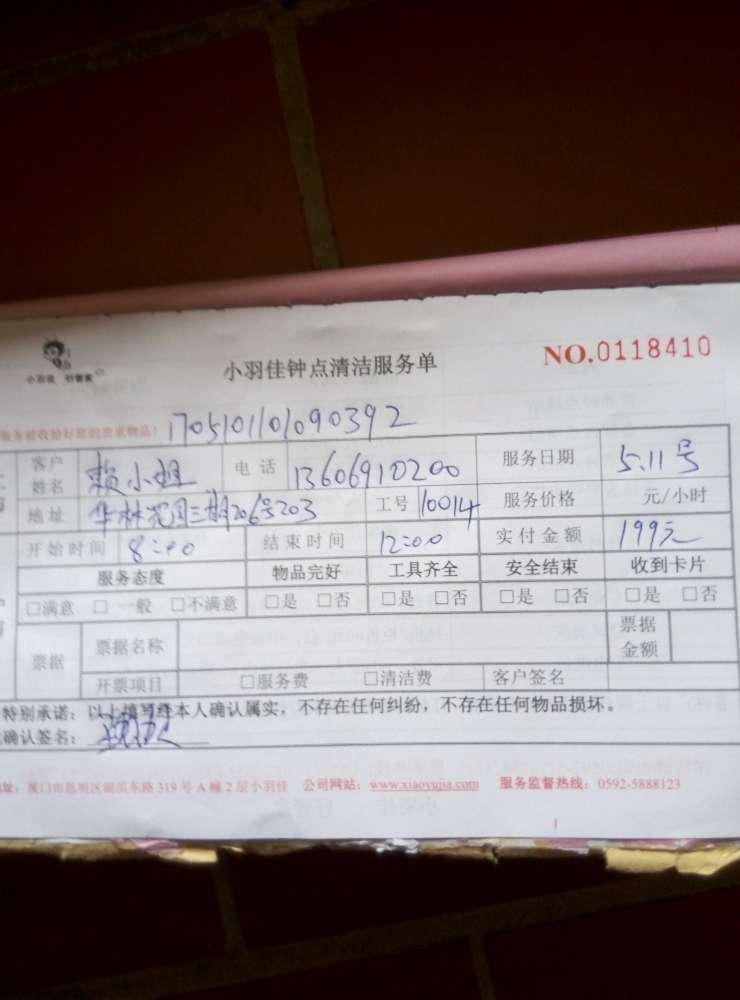 小羽佳 好管家
小羽佳钟点清洁服务单
NO.0118410
服务前收拾好您的贵重物品!
1705101101090392
客户姓名 赖小姐 电话 13606910200 服务日期 5.11号
地址 华林花园三期206号203 工号 10014 服务价格 元/小时
开始时间 8:00 结束时间 12:00 实付金额 199元
服务态度 物品完好 工具齐全 安全结束 收到卡片
□满意 □一般 □不满意 □是 □否 □是 □否 □是 □否 □是 □否
票据 票据名称 票据金额
开票项目 □服务费 □清洁费 客户签名
特别承诺：以上填写经本人确认属实，不存在任何纠纷，不存在任何物品损坏。
确认签名：
地址：厦门市思明区湖滨东路319号A幢2层小羽佳 公司网站：www.xiaoyujia.com 服务监督热线：0592-5888123